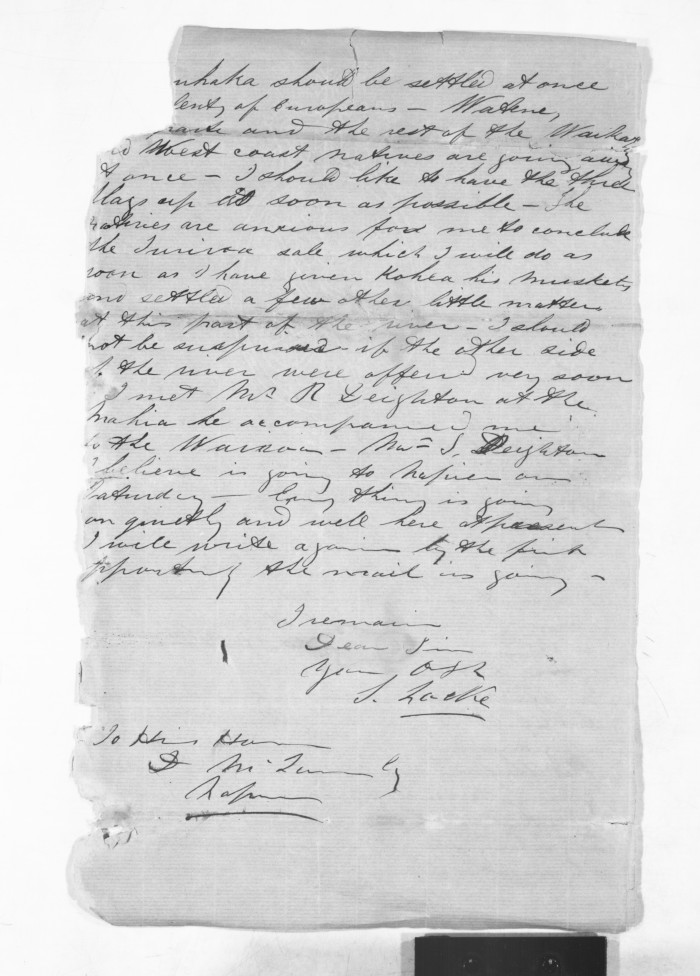 uhaka should be settled at once
lenty of Europeans - Watene,
and the rest of the Waikato
West coast natives are going away
at once - I should like to have the three
flags up as soon as possible - The
natives are anxious for me to conclude
the Turiroa sale which I will do as
soon as I have given Kohea his muskets
and settled a few other little matters
at this part of the river - I should
not be surprised if the other side
of the river were offered very soon
I met Mr R Deighton at the
Mahia he accompanied me
to the Wairoa - Mr S. Deighton
I believe is going to Napier on
Saturday - Every thing is going
on quietly and well here at present
I will write again by the first
opportunity the mail is going -
I remain
Dear Sir
Your Obt
S. Locke
To His Honor
D McLean Esq
Napier